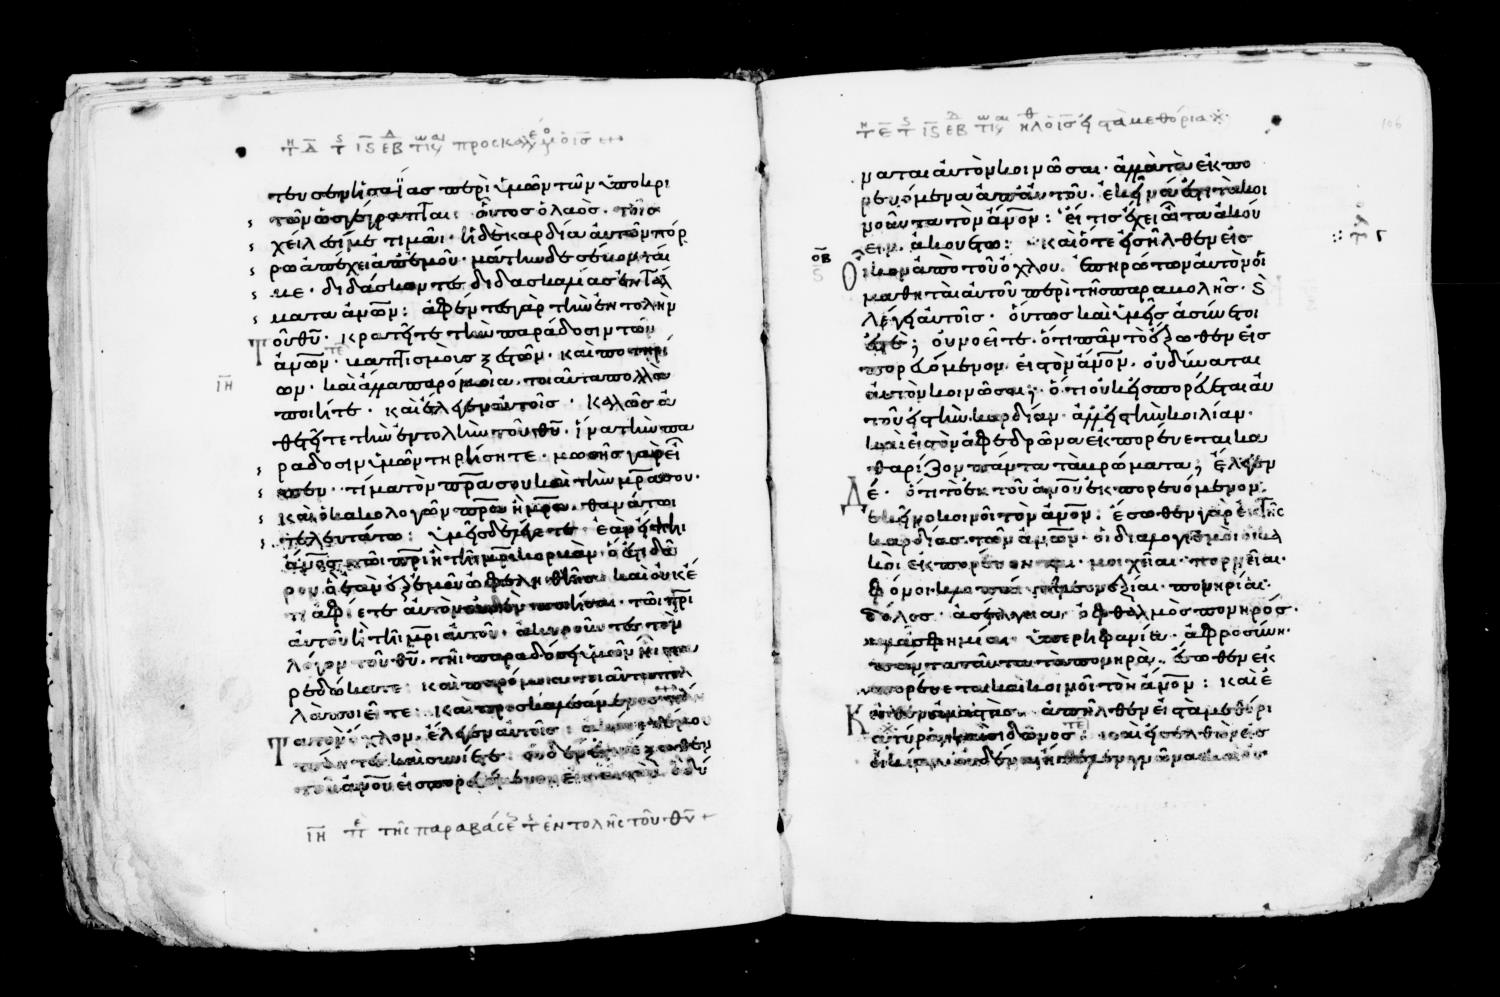 τευσεν ἡσαΐας περὶ ὑμῶν τῶν ὑποκρι
τῶν ὡς γέγραπται· οὗτος ὁ λαὸς· τοῖς
χείλεσί με τιμᾶι· ἡ δὲ καρδία αὐτῶν πόρ
ρω ἀπέχει ἀπ' ἐμοῦ· μάτην δὲ σέβονταί
με· διδάσκοντες διδασκαλίας ἐντάλ
ματα ἀνων: ἀφέντες γὰρ τὴν ἐντολὴν
τοῦ θυ· κρατεῖτε τὴν παράδοσιν τῶν
ἀνων· βαπτισμοὺς ξεστῶν· καὶ ποτηρί
ων· καὶ ἄλλα παρόμοια τοιαῦτα πολλὰ
ποιεῖτε· καὶ ἔλεγεν αὐτοῖς· καλῶς ἀ
θετεῖτε τὴν ἐντολὴν τοῦ θυ· ἵνα τὴν πα
ράδοσιν ὑμῶν τηρήσητε· μωσῆς γὰρ εἶ
πεν· τίμα τὸν πρα σου καὶ τὴν μρα σου·
καὶ ὁ κακολογῶν πρα ἢ μρα· θανάτωι
τελευτάτω: ὑμεῖς δὲ λέγετε· ἐὰν εἴπηι
ἀνος τῶι πρι ἢ τῆι μρι κορβᾶν· ὅ ἐστι δῶ
ρον ὃ ἐὰν ἐξ ἐμοῦ ὠφεληθῆις καὶ οὐκέ
τι ἀφίετε αὐτὸν οὐδὲν ποιῆσαι· τῶι πρι
αὐτοῦ ἢ τῆι μρι αὐτοῦ· ἀκυροῦντες τὸν
λόγον τοῦ θυ· τῆι παραδόσει ὑμῶν ἧι πα
ρεδώκατε· καὶ παρόμοια τοιαῦτα πολ
λὰ ποιεῖτε: καὶ προσκαλεσάμενος
τὸν ὄχλον· ἔλεγεν αὐτοῖς: ἀκούετέ μου
καὶ συνίετε: οὐδέν ἐστιν ἔξωθεν
τοῦ ἀνου εἰσπορευόμενον εἰς αὐτὸν ὃ δύ
ΙΗ τῆς παραβάσε τ ἐντολῆς τοῦ θυ
ναται αὐτὸν κοινῶσαι· ἀλλὰ τὰ ἐκπο
ρευόμενα ἀπ' αὐτοῦ· ἐκεῖνά ἐστι τὰ κοι
νοῦντα τὸν ἀνον: εἴ τις ἔχει ὦτα ἀκού
ειν ἀκουέτω: καὶ ὅτε εἰσῆλθεν εἰς
οἶκον ἀπὸ τοῦ ὄχλου· ἐπηρώτων αὐτὸν οἱ
μαθηταὶ αὐτοῦ περὶ τῆς παραβολῆς· καὶ
λέγει αὐτοῖς· οὕτως καὶ ὑμεῖς ἀσύνετοί
ἐστε; οὐ νοεῖτε· ὅτι πᾶν τὸ ἔξωθεν εἰς
πορευόμενον· εἰς τὸν ἀνον· οὐ δύναται
αὐτὸν κοινῶσαι; ὅτι οὐκ εἰσπορεύεται αὐ
τοῦ εἰς τὴν καρδίαν· ἀλλ' εἰς τὴν κοιλίαν·
καὶ εἰς τὸν ἀφεδρῶνα ἐκπορεύεται κα
θαρίζον πάντα τὰ βρώματα; ἔλεγεν
δέ· ὅτι τὸ ἐκ τοῦ ἀνου ἐκπορευόμενον·
ἐκεῖνο κοινοῖ τὸν ἀνον: ἔσωθεν γὰρ ἐκ τῆς
καρδίας τῶν ἀνων· οἱ διαλογισμοὶ οἱ κα
κοὶ ἐκπορεύονται· μοιχεῖαι· πορνεῖαι·
φόνοι· πλεονεξίαι· πονηρίαι·
δόλος· ἀσέλγεια· ὀφθαλμὸς πονηρός·
βλασφημία· ὑπερηφανία· ἀφροσύνη·
πάντα ταῦτα τὰ πονηρὰ· ἔσωθεν ἐκ
πορεύεται καὶ κοινοῖ τὸν ἀνον: καὶ ἐ
κεῖθεν ἀναστὰς· ἀπῆλθεν εἰς τὰ μεθόρι
α τύρου καὶ σιδῶνος: καὶ εἰσελθὼν εἰς
οἰκίαν οὐδένα ἤθελεν γνῶναι